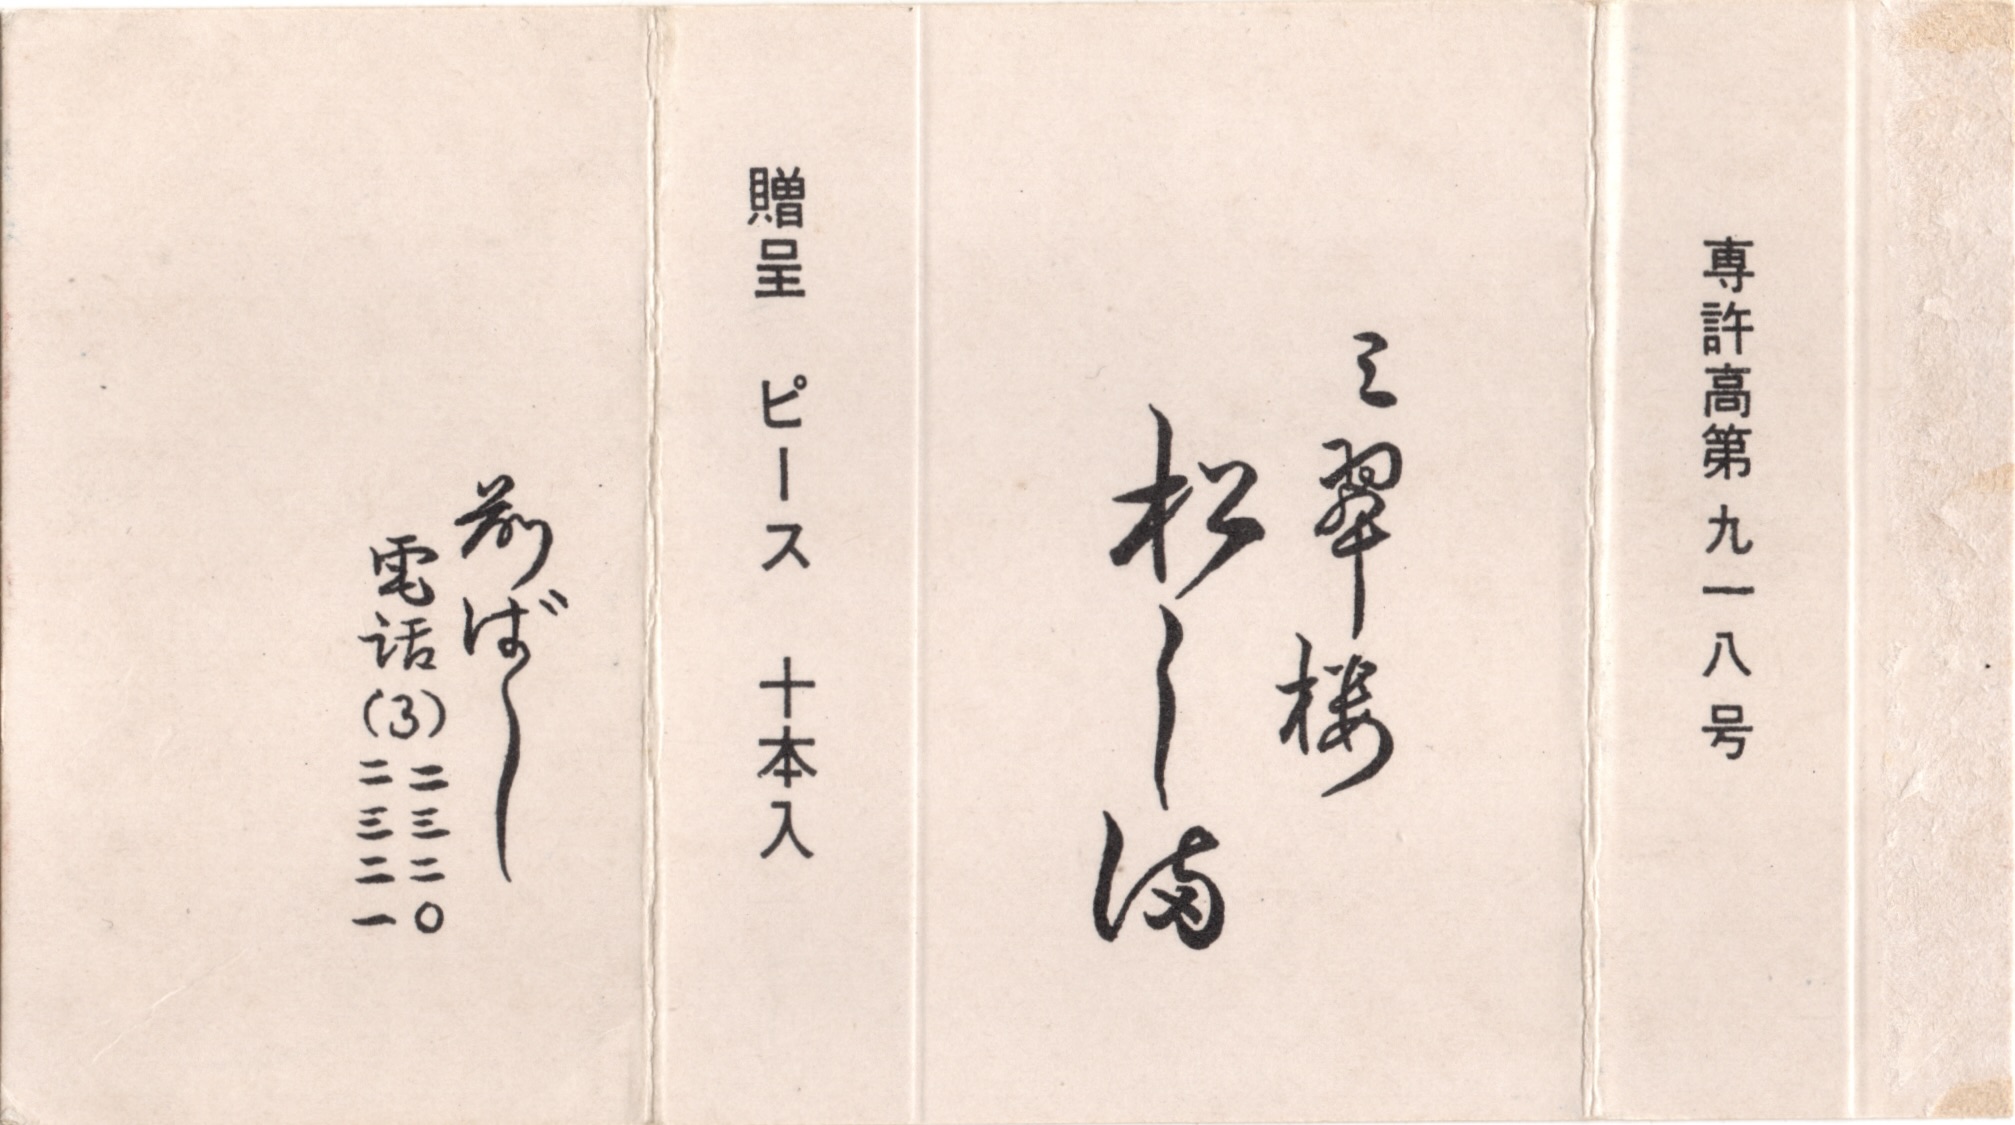 専許高第九一八号
三翠楼
松し満
贈呈 ピース 十本入
前ばし
電話(3)二三二〇
二三二一